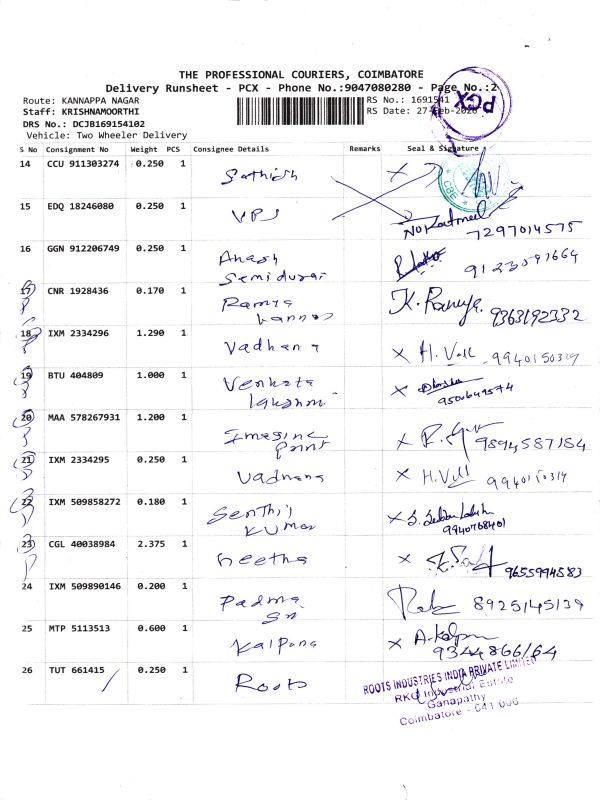 THE PROFESSIONAL COURIERS, COIMBATORE
Delivery Runsheet - PCX - Phone No.:9047080280 - Page No.:2
Route: KANNAPPA NAGAR RS No.: 1691541
Staff: KRISHNAMOORTHI RS Date: 27-Feb-2020
DRS No.: DCJB169154102 PCX
Vehicle: Two Wheeler Delivery
S No Consignment No Weight PCS Consignee Details Remarks Seal & Signature
14 CCU 911303274 0.250 1 Sathish X
CBE
15 EDQ 18246080 0.250 1 VPS
7297014575
16 GGN 912206749 0.250 1 Anash
Semidurai 9123591664
17 CNR 1928436 0.170 1 Ramya K. Ramya. 9363192332
Kannan
18 IXM 2334296 1.290 1 Vadhana X H. Vall 9940150319
19 BTU 404809 1.000 1 Venkata X
lakshmi 9500649574
20 MAA 578267931 1.200 1 Imagine X 9894587184
print
21 IXM 2334295 0.250 1 Vadhana X H. Vall 9940150319
22 IXM 509858272 0.180 1 Senthil X
Kumar 9940768401
23 CGL 40038984 2.375 1 Geetha X 9655994583
24 IXM 509890146 0.200 1 Padma 8925145139
Sri
25 MTP 5113513 0.600 1 Kalpana X A. Kalpana
9344866164
26 TUT 661415 0.250 1 Roots
ROOTS INDUSTRIES INDIA PRIVATE LIMITED
RKG Industrial Estate
Ganapathy
Coimbatore - 641 006